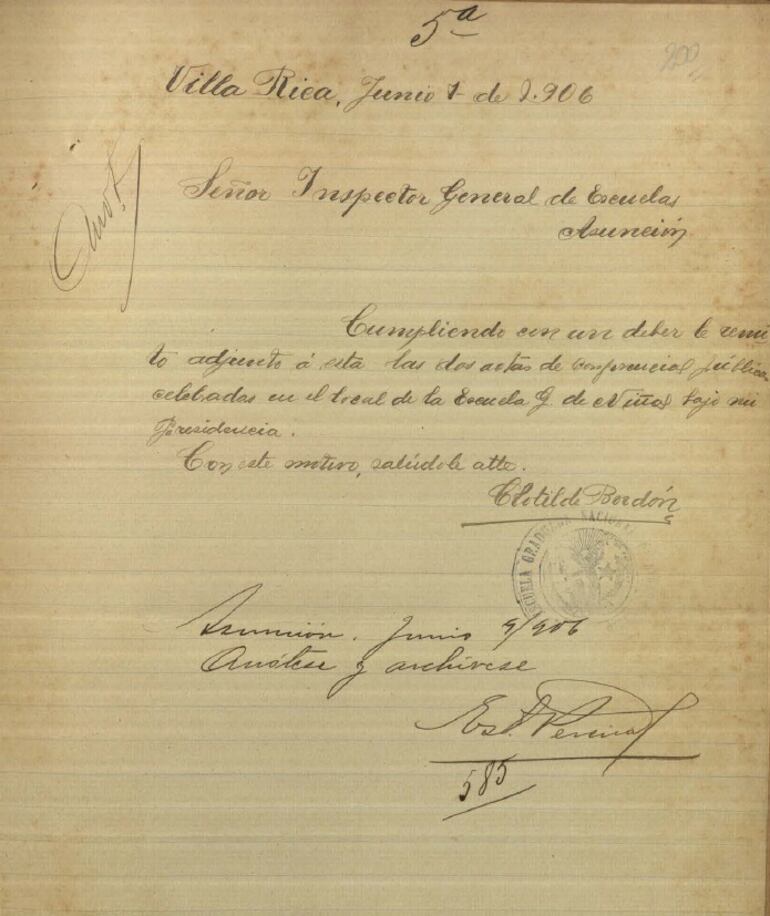 5ª
200
Villa Rica, Junio 1 de 1.906
Anot.
Señor Inspector General de Escuelas
Asunción
Cumpliendo con un deber le remi
to adjunto á esta las dos actas de conferencias pública
celebadas en el local de la Escuela G. de Niñas bajo mi
Presidencia.
Con este motivo, salúdole atte.
Clotilde Bordón
ESCUELA GRADUADA NACIONAL
Asunción. Junio 9/906
Anótese y archívese
585